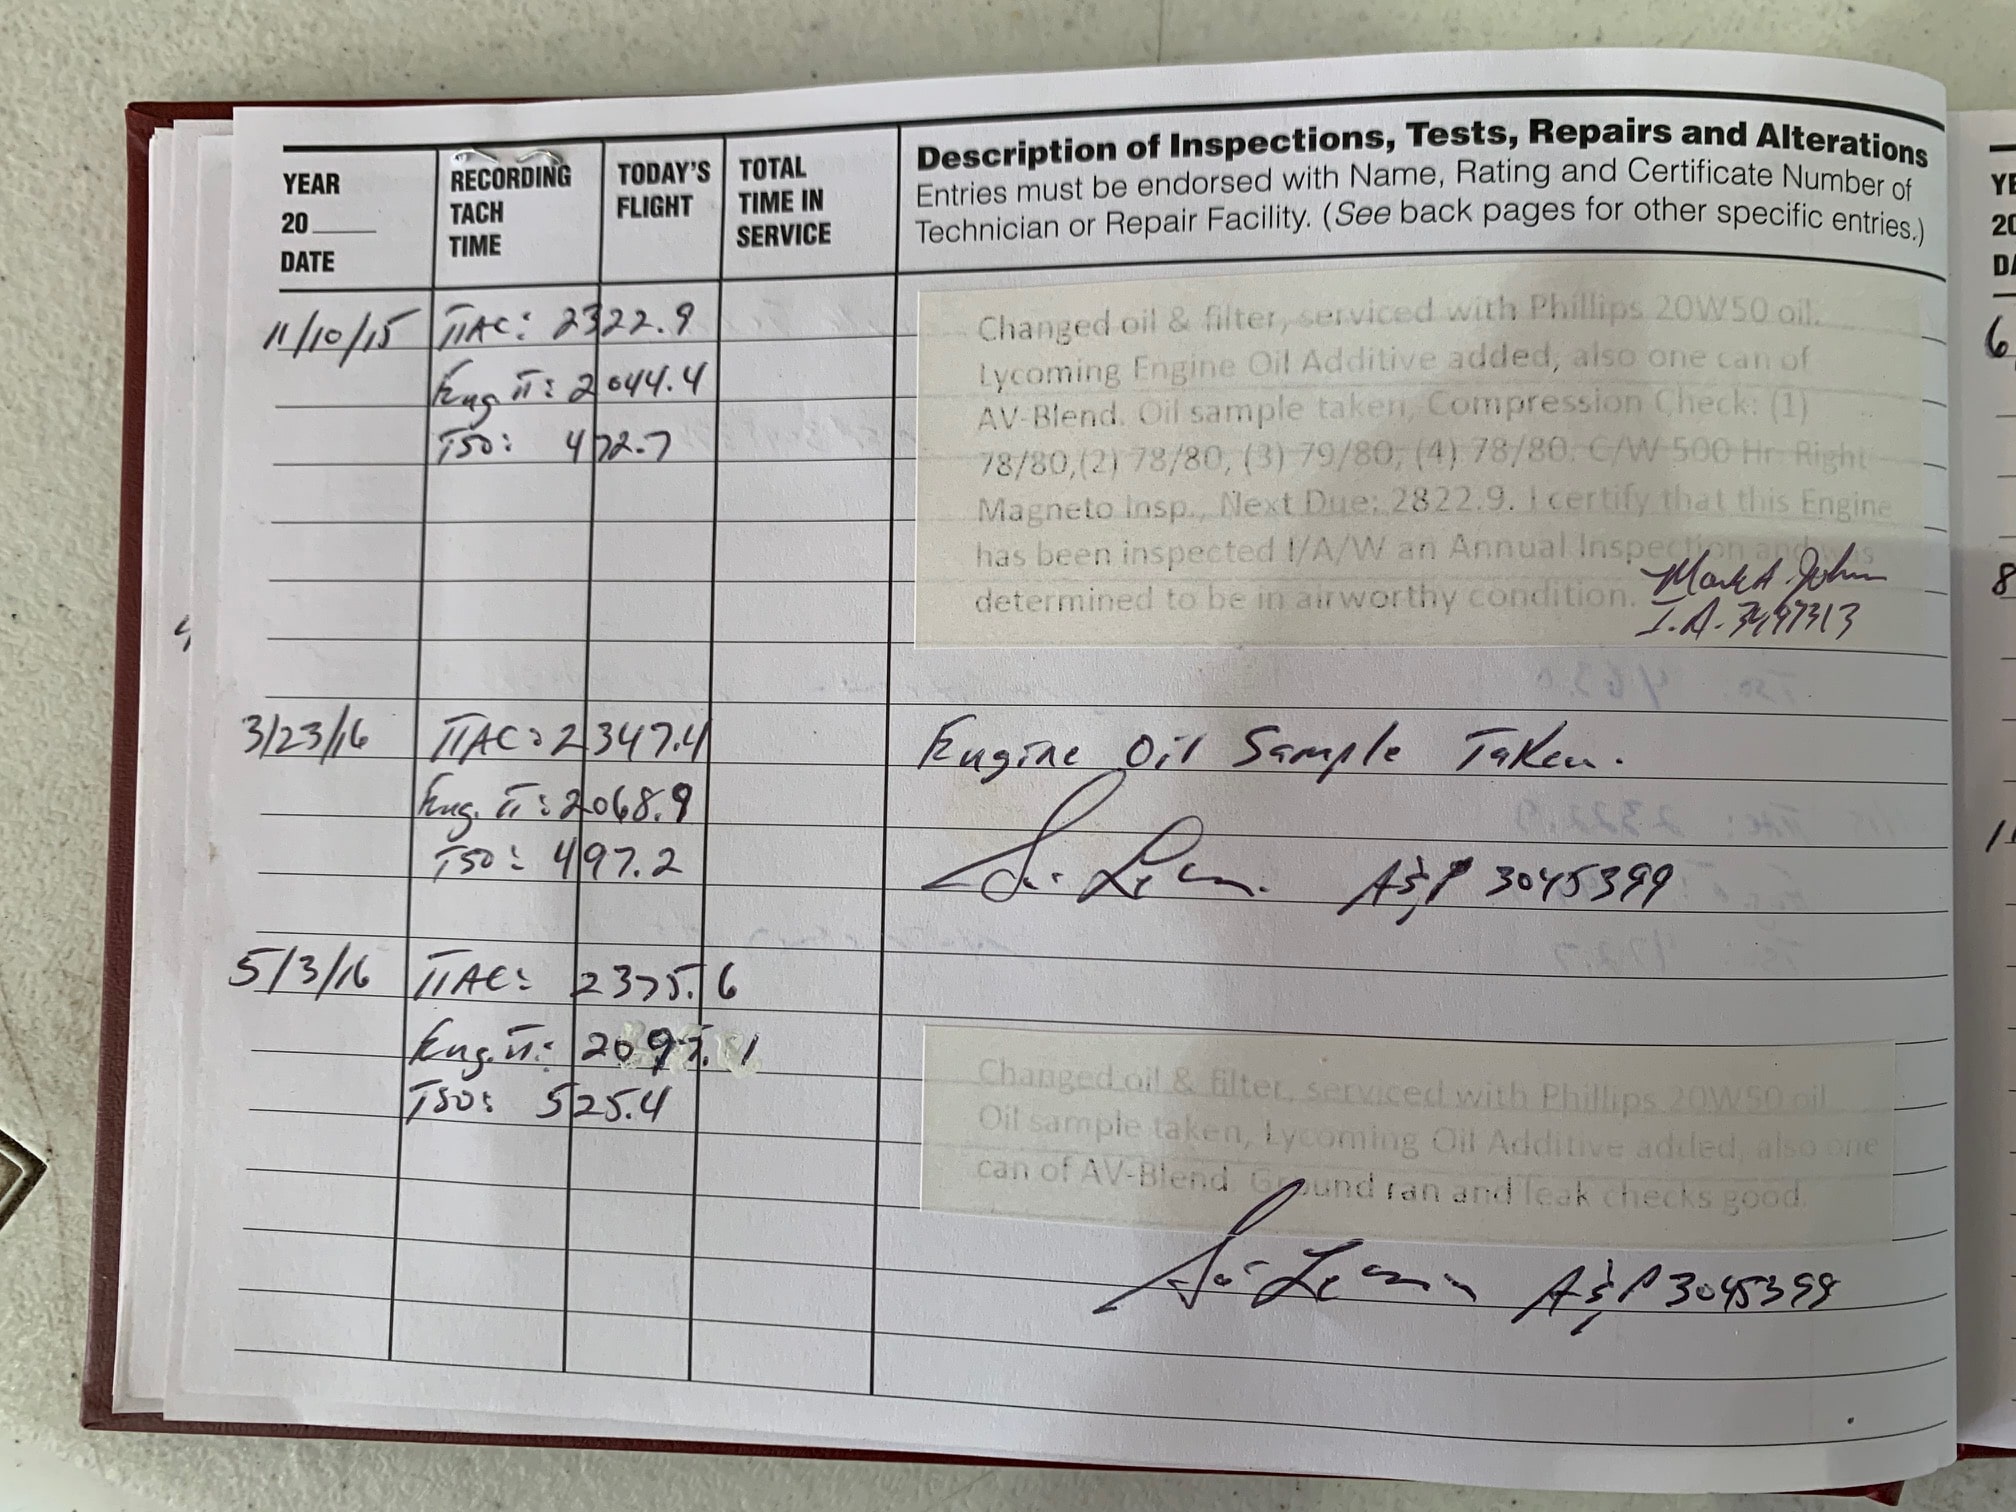 YEAR
20
DATE
RECORDING
TACH
TIME
TODAY'S
FLIGHT
TOTAL
TIME IN
SERVICE
Description of Inspections, Tests, Repairs and Alterations
Entries must be endorsed with Name, Rating and Certificate Number of
Technician or Repair Facility. (See back pages for other specific entries.)
11/10/15 TTAC: 2322.9
Eng TT: 2044.4
TSO: 472.7
Changed oil & filter, serviced with Phillips 20W50 oil.
Lycoming Engine Oil Additive added, also one can of
AV-Blend. Oil sample taken, Compression Check: (1)
78/80,(2) 78/80, (3) 79/80, (4) 78/80. C/W 500 Hr. Right
Magneto Insp., Next Due: 2822.9. I certify that this Engine
has been inspected I/A/W an Annual Inspection and was
determined to be in airworthy condition.
Mark A.
I.A. 3497313
3/23/16 TTAC: 2347.4
Eng. TT: 2068.9
TSO: 497.2
Engine Oil Sample Taken.
A&P 3045399
5/3/16 TTAC: 2375.6
Eng. TT: 2097.1
TSO: 525.4
Changed oil & filter, serviced with Phillips 20W50 oil
Oil sample taken, Lycoming Oil Additive added, also one
can of AV-Blend. Ground ran and leak checks good.
A&P 3045399
YE
20
DA
6
8